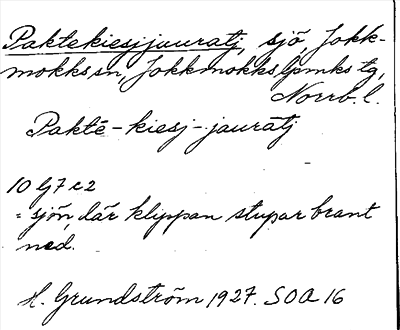 Paktekiesjjauratj, sjö, Jokk-
mokks sn, Jokkmokks lpmks tg,
Norrb. l.
Paktē-kiesj-jauratj
10 G7 c2
= sjön, där klippan stupar brant
ned.
H. Grundström 1927. SOA 16